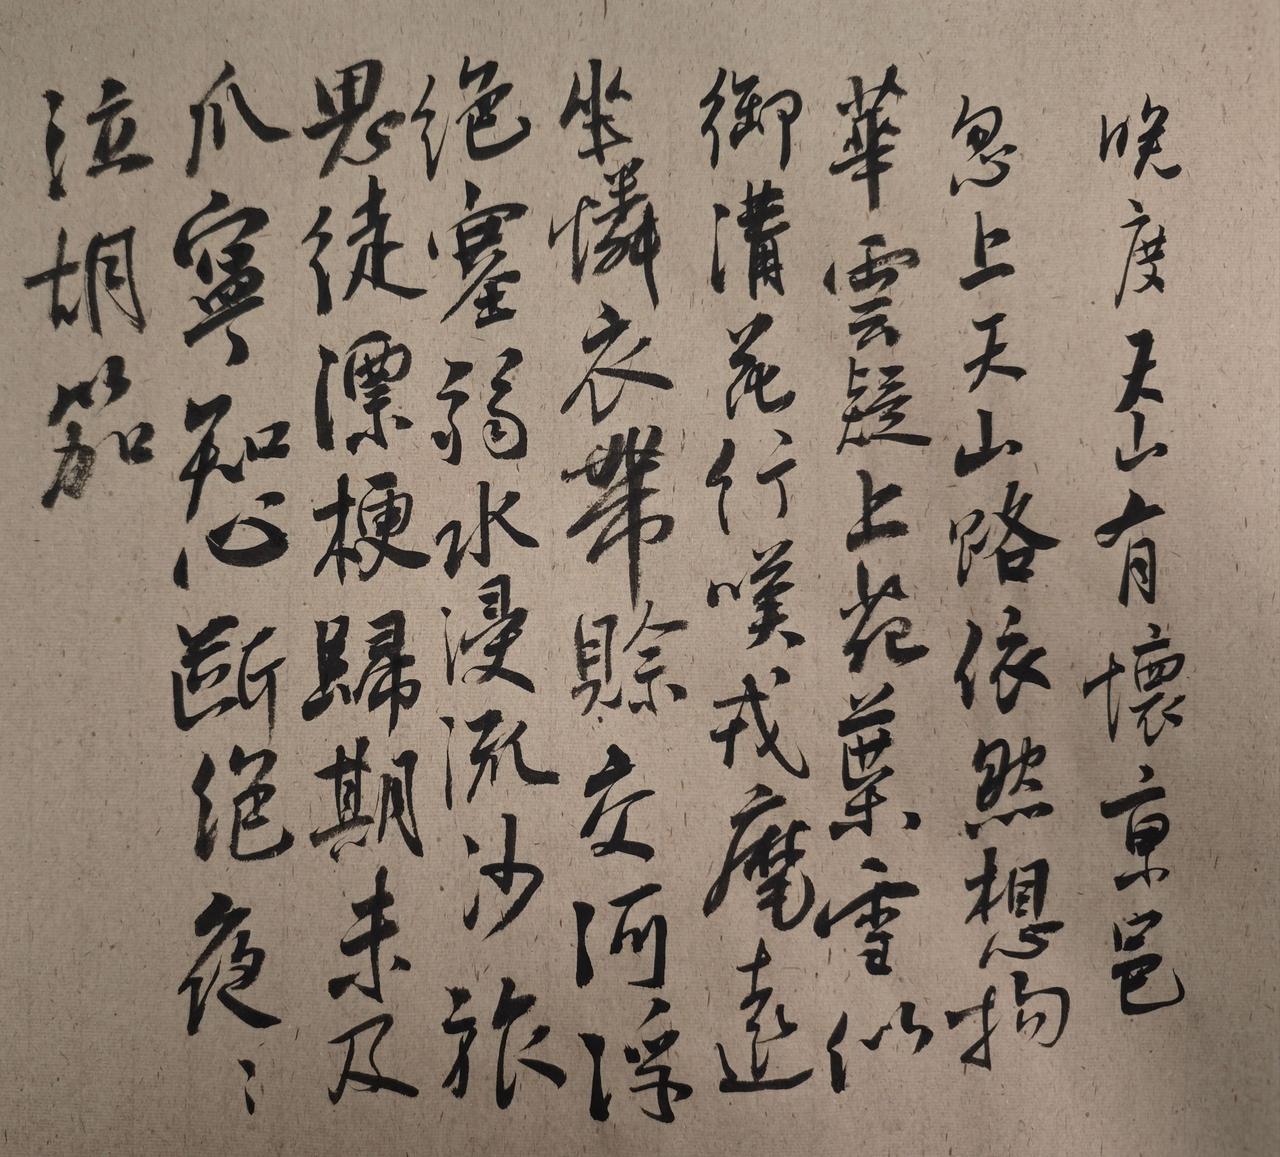 晚度天山有懷京邑
忽上天山路依然想物
華雲疑上苑葉雪似
御溝花行嘆戎麾遠
坐憐衣帶賒交河浮
絕塞弱水浸流沙旅
思徒漂梗歸期未及
瓜寧知心斷絕夜〻
泣胡笳